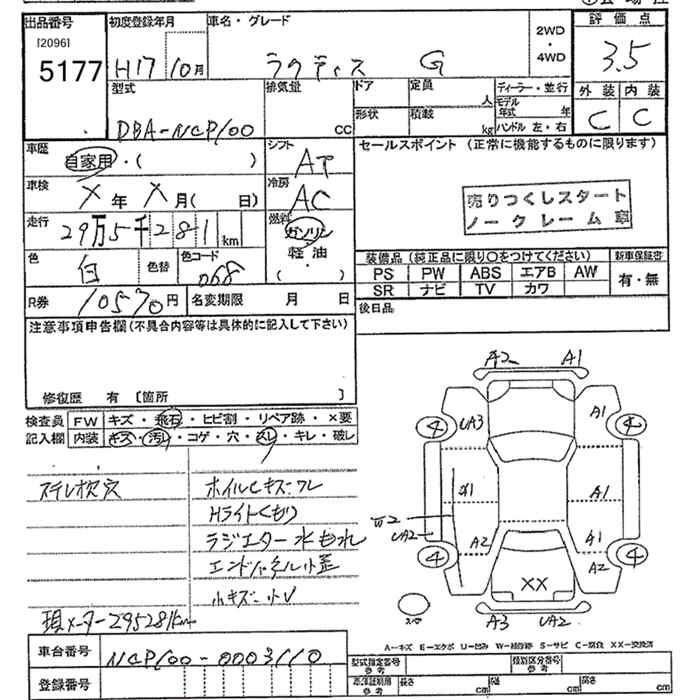 出品番号 初度登録年月 車名・グレード 2WD ・ 4WD 評価点
[2096]
5177 H17 10月 ラクティス G 3.5
型式 排気量 ドア 定員 人 ディーラー・並行 外装 内装
形状 積載 kg モデル年式 年 ハンドル 左・右 C C
DBA-NCP100 cc
車歴 自家用・( ) シフト AT セールスポイント (正常に機能するものに限ります)
車検 X年X月(日) 冷房 AC 売りつくしスタート
ノークレーム車
走行 29万5千281km 燃料 ガソリン 軽油 ( )
色 白 色替 色コード 068 装備品 (純正品に限り〇をつけてください) 新車保証書
PS PW ABS エアB AW 有・無
SR ナビ TV カワ
R券 10570円 名変期限 月 日 後日品
注意事項申告欄(不具合内容等は具体的に記入して下さい)
修復歴 有 〔箇所 〕
検査員 FW キズ・飛石・ヒビ割・リペア跡・×要
記入欄 内装 キズ・汚レ・コゲ・穴・スレ・キレ・破レ
ステレオ欠穴 ホイルCキズ
Hライトくもり
ラジエター水もれ
小キズ
現メーター295281km
A2 A1
4 UA3 A1 4
A1 A1
W2 UA2 A2 A1 A2
4 XX 4
スペア A3 UA2
A-キズ E-エクボ U-凹み W-補修跡 S-サビ C-腐食 XX-交換済
車台番号 NCP100-0003110 型式指定番号 参考 類別区分番号
登録番号 車庫証明用 参考 長さ cm 幅 cm 高さ cm